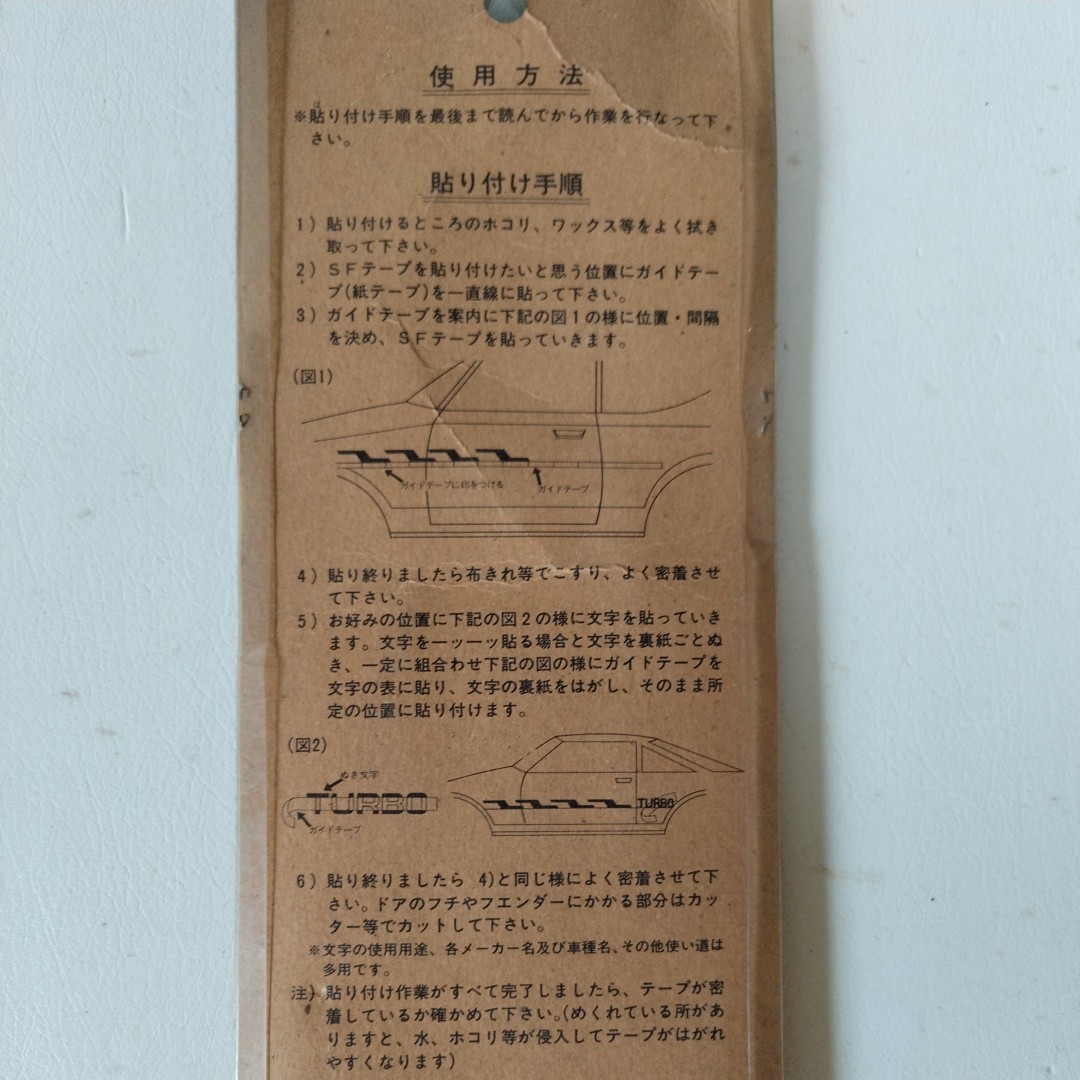 使用方法
※貼り付け手順を最後まで読んでから作業を行なって下
さい。
貼り付け手順
1) 貼り付けるところのホコリ、ワックス等をよく拭き
取って下さい。
2) SFテープを貼り付けたいと思う位置にガイドテー
プ(紙テープ)を一直線に貼って下さい。
3) ガイドテープを案内に下記の図1の様に位置・間隔
を決め、SFテープを貼っていきます。
(図1)
ガイドテープに印をつける
ガイドテープ
4) 貼り終りましたら布きれ等でこすり、よく密着させ
て下さい。
5) お好みの位置に下記の図2の様に文字を貼っていき
ます。文字を一ッ一ッ貼る場合と文字を裏紙ごとぬ
き、一定に組合わせ下記の図の様にガイドテープを
文字の表に貼り、文字の裏紙をはがし、そのまま所
定の位置に貼り付けます。
(図2)
ぬき文字
TURBO
ガイドテープ
TURBO
6) 貼り終りましたら 4)と同じ様によく密着させて下
さい。ドアのフチやフエンダーにかかる部分はカッ
ター等でカットして下さい。
※文字の使用用途、各メーカー名及び車種名、その他使い道は
多用です。
注) 貼り付け作業がすべて完了しましたら、テープが密
着しているか確かめて下さい。(めくれている所があ
りますと、水、ホコリ等が侵入してテープがはがれ
やすくなります)